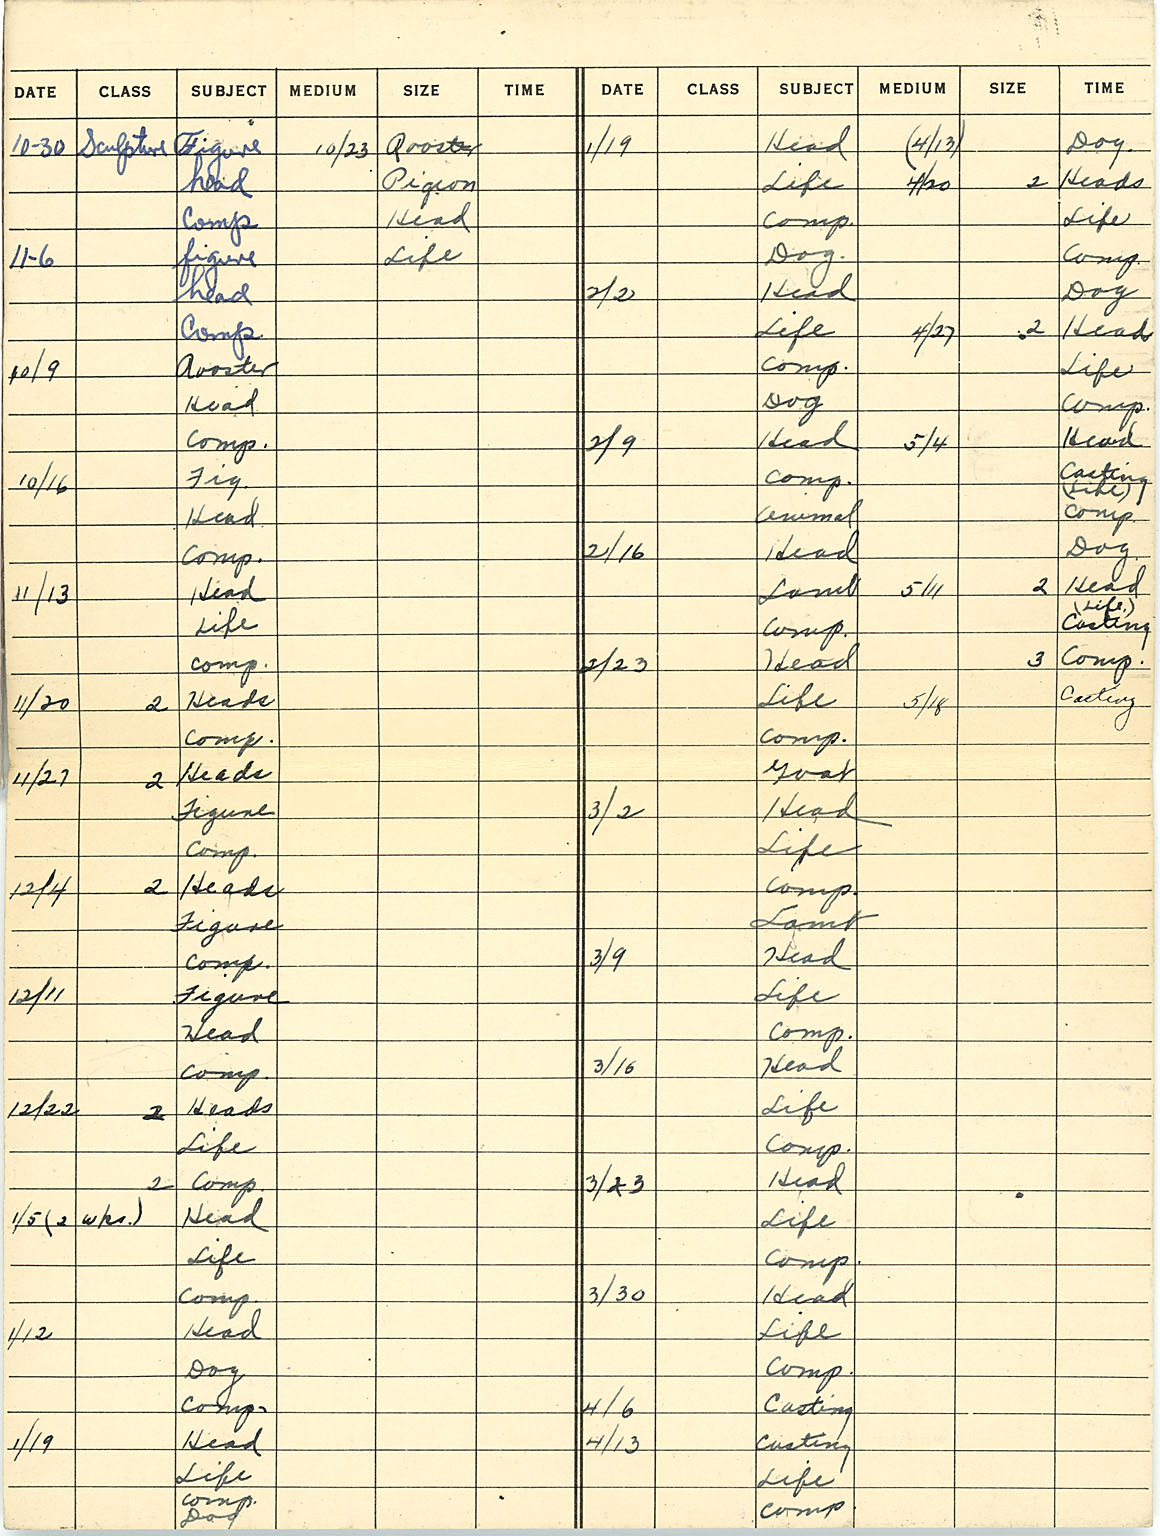 DATE CLASS SUBJECT MEDIUM SIZE TIME
10-30 Sculpture Figure 10/23 Rooster
head Pigeon
Comp Head
11-6 figure Life
head
Comp.
10/9 Rooster
Head
Comp.
10/16 Fig.
Head
Comp.
11/13 Head
Life
comp.
11/20 2 Heads
Comp.
11/27 2 Heads
Figure
Comp.
12/4 2 Heads
Figure
Comp.
12/11 Figure
Head
Comp.
12/22 2 Heads
Life
2 Comp.
1/5 (2 wks.) Head
Life
Comp.
1/12 Head
Dog
Comp.
1/19 Head
Life
comp.
Dog
DATE CLASS SUBJECT MEDIUM SIZE TIME
1/19 Head (4/13) Dog.
Life 4/20 2 Heads
Comp. Life
Dog. Comp.
2/2 Head Dog
Life 4/27 2 Heads
Comp. Life
Dog Comp.
2/9 Head 5/4 Head
Comp. Casting
(Life)
animal Comp.
2/16 Head Dog.
Lamb 5/11 2 Head
(Life)
Comp. Casting
2/23 Head 3 Comp.
Life 5/18 Casting
Comp.
Goat
3/2 Head
Life
Comp.
Lamb
3/9 Head
Life
Comp.
3/16 Head
Life
Comp.
3/23 Head
Life
Comp.
3/30 Head
Life
Comp.
4/6 Casting
4/13 Casting
Life
Comp.